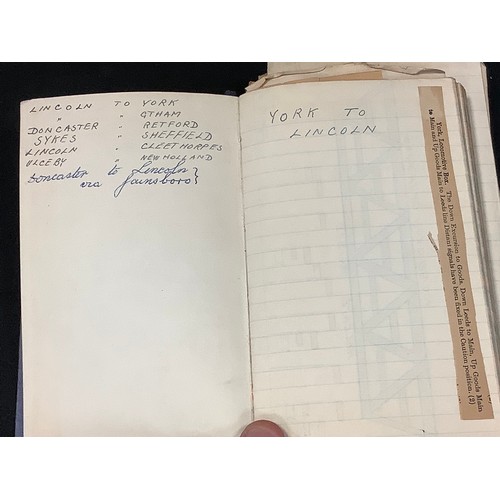 LINCOLN TO YORK
" " GTHAM
DONCASTER " RETFORD
SYKES " SHEFFIELD
LINCOLN " CLEETHORPES
ULCEBY " NEW HOLLAND
Doncaster to Lincoln }
via Gainsboro }
YORK TO
LINCOLN
York Locomotive Box. The Down Excursion to Goods, Down Leeds to Main, Up Goods Main
to Main and Up Goods Main to Leeds line Distant signals have been fixed in the Caution position. (2)